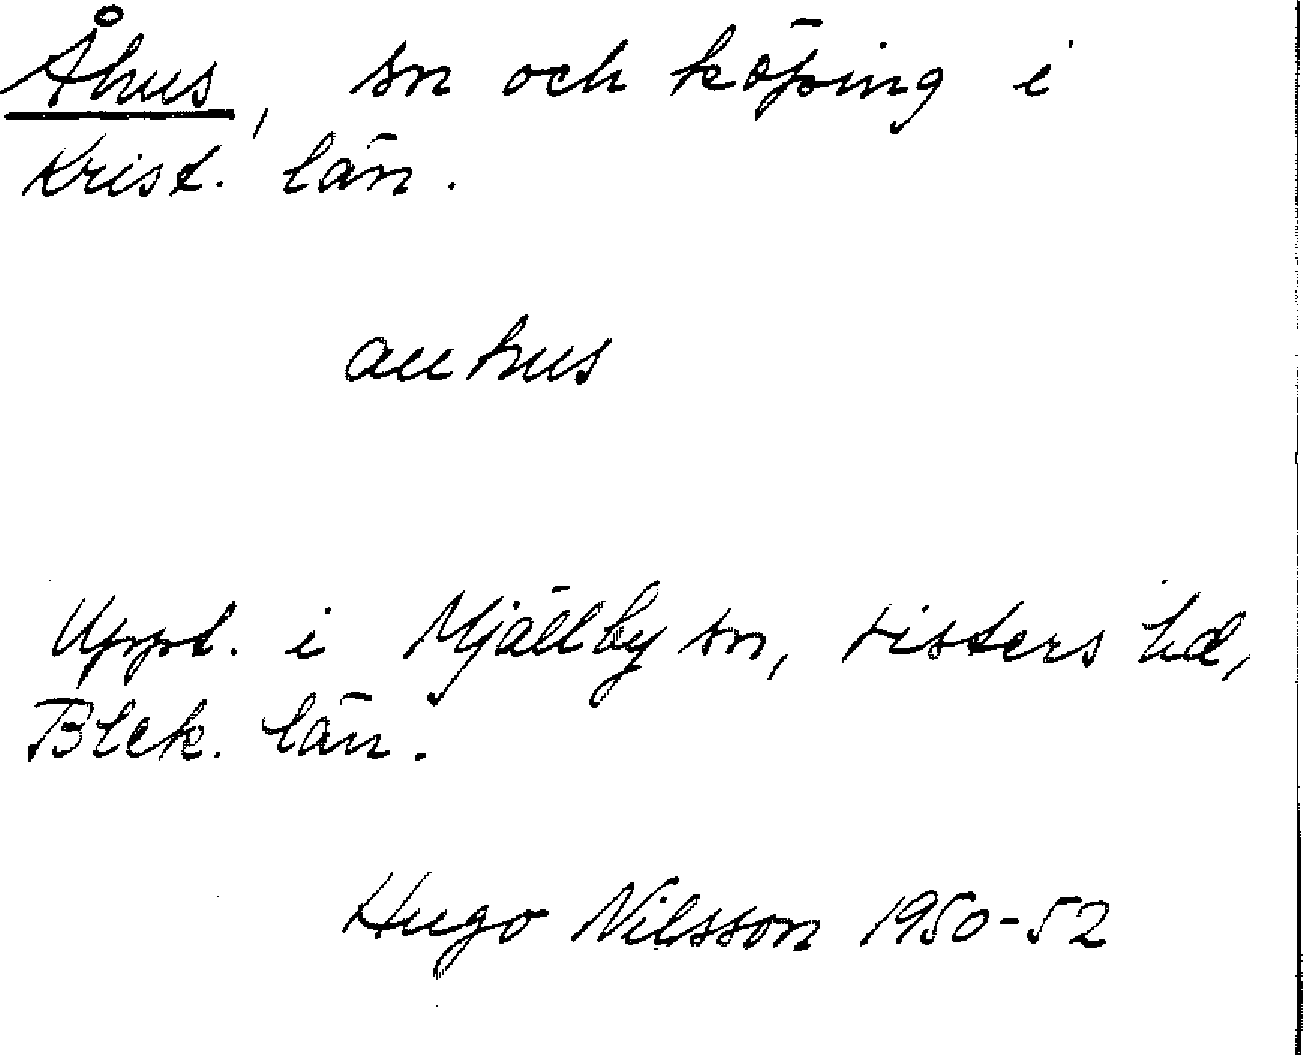 Åhus, sn och köping i
Krist. län.
auhus
Uppt. i Mjällby sn, Listers hd,
Blek. län.
Hugo Nilsson 1950-52